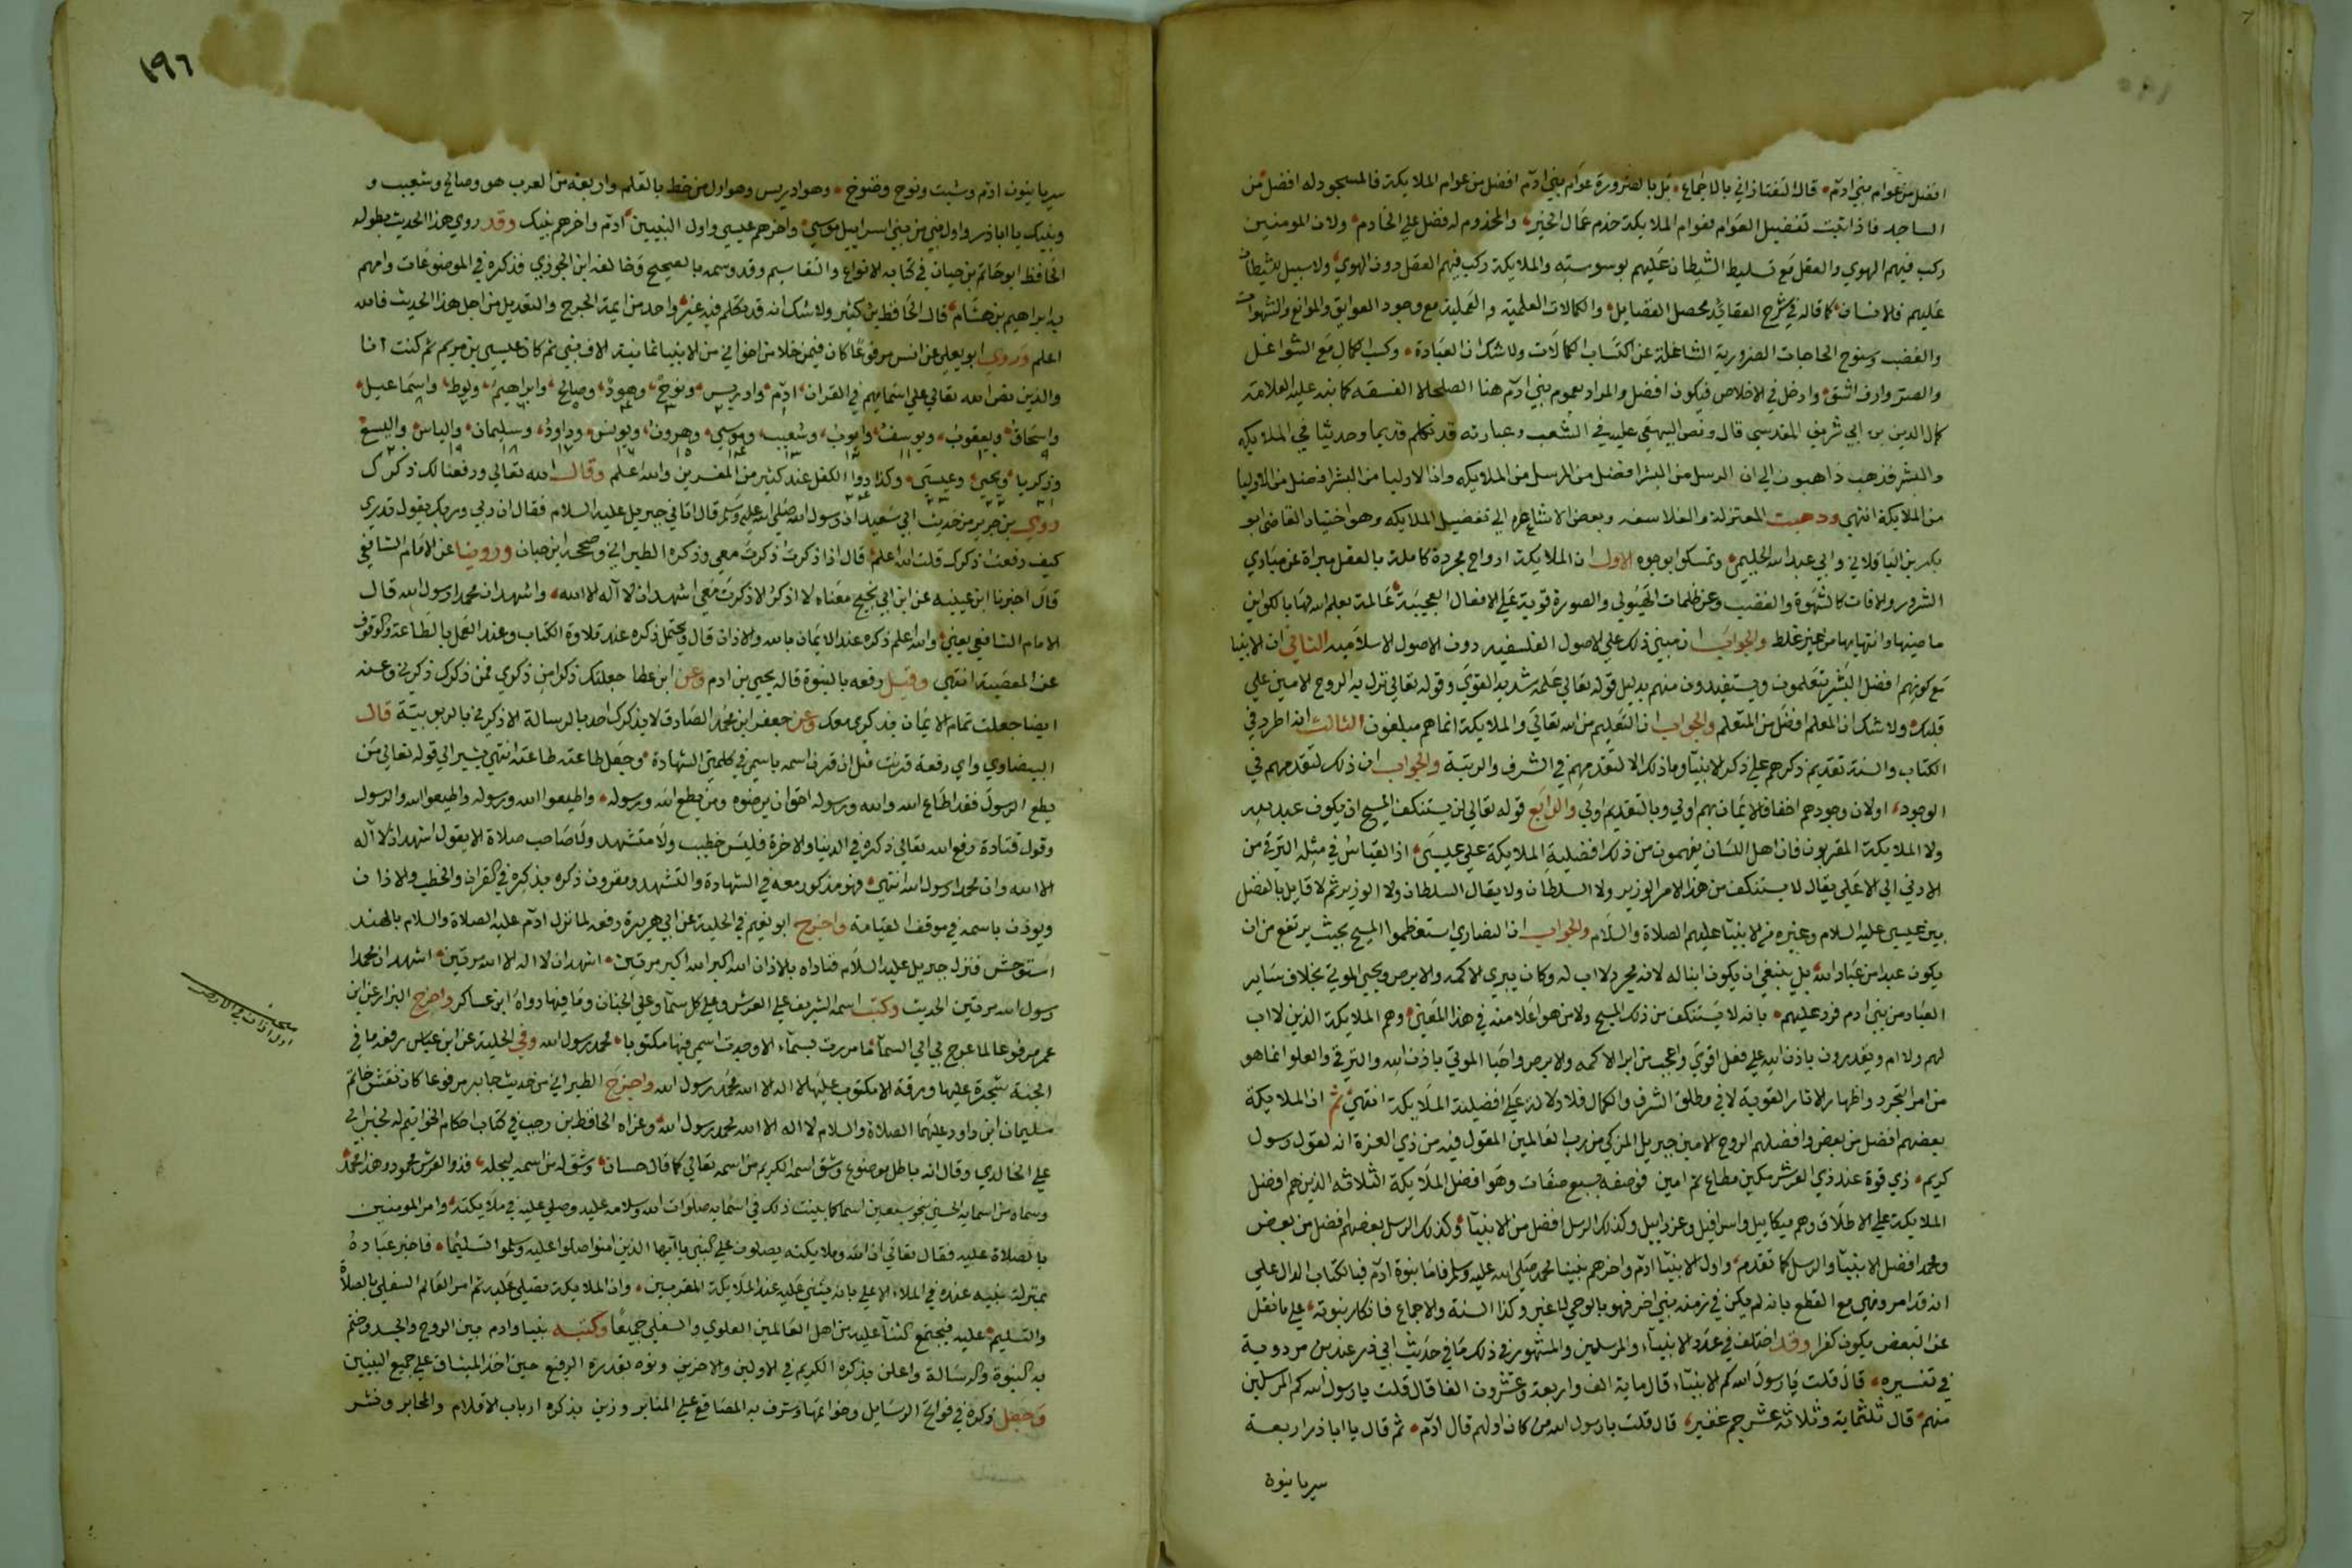 افضل من عوام بني ادم قال التفتازاني بالاجماع بل بالضرورة عوام بني ادم افضل من عوام الملايكة فالمسجود له افضل من
الساجد فاذا ثبت تفضيل العوام لعوام الملايكة خدم عمال الخير والمخدوم له فضل علي الخادم ولان المومنين
ركب فيهم الهوي والعقل مع تسليط الشيطان عليهم بوسوسته والملايكة ركب فيهم العقل دون الهوي ولا سبيل للشيطان
عليهم فالانسان كما قاله في شرح العقائد محصل الفضايل والكمالات العلمية والعملية مع وجود العوايق والموانع والشهوات
والغضب وسنوح الحاجات الضرورية الشاغلة عن اكتساب الكمالات ولا شك ان العبادة وكسب الكمال مع الشواغل
والصوارف اشق وادخل في الاخلاص فيكون افضل والمراد بعموم بني ادم هنا الصلحا لا الفسقه كما نبه عليه العلامة
كمال الدين بن ابي شريف المقدسي قال ونص البيهقي عليه في الشعب وعبارته قد تكلم قديما وحديثا في الملايكه
والبشر فذهب ذاهبون الي ان الرسل من البشر افضل من الرسل من الملايكه وان الاوليا من البشر افضل من الاوليا
من الملايكة انتهي وذهبت المعتزلة والفلاسفه وبعض الاشاعره الي تفضيل الملايكه وهو اختيار القاضي ابو
بكر بن الباقلاني وابي عبد الله الحليمي وتمسكوا بوجوه الاول ان الملايكة ارواح مجردة كاملة بالعقل مبراة عن مبادي
الشرور والافات كالشهوة والغضب وعن ظلمات الهيولي والصورة قوية علي الافعال العجيبة عالمة بعلم الله تها بالكواين
ماضيها واتيها من غير غلط والجواب ان مبني ذلك علي الاصول الفلسفيه دون الاصول الاسلاميه الثاني ان الانبيا
مع كونهم افضل البشر يتعلمون ويستفيدون منهم بدليل قوله تعالي علمه شديد القوي وقوله تعالي نزل به الروح الامين علي
قلبك ولا شك ان المعلم افضل من المتعلم والجواب ان التعليم من الله تعالي والملايكة انما هم مبلغون الثالث انه اطرد في
الكتاب والسنة تقديم ذكرهم علي ذكر الانبيا وما ذلك الا لتقدمهم في الشرف والرتبة والجواب ان ذلك لتقدمهم في
الوجود اولان وجودهم اخفا فالايمان بهم اولي وبالتقديم اولي والرابع قوله تعالي لن يستنكف المسيح ان يكون عبدا لله
ولا الملايكة المقربون فان اهل اللسان يفهمون من ذلك افضلية الملايكة علي عيسي اذ القياس في مثله الترقي من
الادني الي الاعلي يقال لا يستنكف من هذا الامر الوزير ولا السلطان ولا يقال السلطان ولا الوزير ثم لا قايل بالفضل
بين عيسي عليه السلام وغيره من الانبيا عليهم الصلاة والسلام والجواب ان النصاري استعظموا المسيح بحيث يرتفع من ان
يكون عبدا من عباد الله بل ينبغي ان يكون ابنا له لانه مجرد لا اب له وكان يبري الاكمه والابرص ويحيي الموتي بخلاف ساير
العباد من بني ادم فرد عليهم بانه لا يستنكف من ذلك المسيح ولا من هو اعلا منه في هذا المعني وهم الملايكة الذين لا اب
لهم ولا ام ويقدرون باذن الله علي فعل اقوي واعجب من ابرا الاكمه والابرص واحيا الموتي باذن الله والترقي والعلو انما هو
من امر التجرد واظهار الاثار القوية لا في مطلق الشرف والكمال فلا دلالة علي افضلية الملايكة انتهي ثم ان الملايكة
بعضهم افضل من بعض وافضلهم الروح الامين جبريل المزكي من رب العالمين المقول فيه من ذي العزة انه لقول رسول
كريم ذي قوة عند ذي العرش مكين مطاع ثم امين فوصفه بسبع صفات وهو افضل الملايكة الثلاثه الذين هم افضل
الملايكة علي الاطلاق وهم ميكاييل واسرافيل وعزراييل وكذلك الرسل افضل من الانبيا وكذلك الرسل بعضهم افضل من بعض
ومحمد افضل الانبيا والرسل كما تقدم واول الانبيا ادم واخرهم نبينا محمد صلي الله عليه وسلم فاما نبوة ادم فبالكتاب الدال علي
انه قد امر ونهي مع القطع بانه لم يكن في زمنه نبي اخر فهو بالوحي لا غير وكذا السنة والاجماع فانكار نبوته علي ما نقل
عن البعض يكون كفرا وقد اختلف في عدد الانبياء والمرسلين والمشهور في ذلك ما في حديث ابي ذر عند بن مردوية
في تفسيره قال قلت يا رسول الله كم الانبياء قال ماية الف واربعة وعشرون الفا قال قلت يا رسول الله كم المرسلين
منهم قال ثلثماية وثلاثة عشر جم غفير قال قلت يا رسول الله من كان اولهم قال ادم ثم قال يا اباذر اربعة
سريانيون
١٩٦
سريانيون ادم وشيث ونوح وخنوخ وهو ادريس وهو اول من خط بالقلم واربعة من العرب هود وصالح وشعيب و
ونبيك يا اباذر واول نبي من بني اسراييل موسي واخرهم عيسي واول النبيين ادم واخرهم نبيك وقد روي هذا الحديث بطوله
الحافظ ابو حاتم بن حبان في كتابه الانواع والتقاسيم وقد وسمه بالصحيح وخالفه ابن الجوزي فذكره في الموضوعات واتهم
به ابراهيم بن هشام قال الحافظ بن كثير ولا شك انه قد تكلم فيه غير واحد من ايمة الجرح والتعديل من اجل هذا الحديث فالله
اعلم وروي ابو يعلي عن انس مرفوعا كان فيمن خلا من اخواني من الانبيا ثمانية الاف نبي ثم كان عيسي بن مريم ثم كنت انا
والذين نص الله تعالي علي اسمايهم في القران ادم وادريس ونوح وهود وصالح وابراهيم ولوط واسماعيل
واسحاق ويعقوب ويوسف وايوب وشعيب وموسي وهرون ويونس وداود وسليمان والياس واليسع
وزكريا ويحيي وعيسي وكذا ذوا الكفل عند كثير من المفسرين والله اعلم وقال الله تعالي ورفعنا لك ذكرك
روي بن جرير من حديث ابي سعيد ان رسول الله صلي الله عليه وسلم قال اتاني جبريل عليه السلام فقال ان ربي وربك يقول تدري
كيف رفعت ذكرك قلت الله اعلم قال اذا ذكرت ذكرت معي وذكره الطبراني وصححه ابن حبان وروينا عن الامام الشافعي
قال اخبرنا ابن عيينه عن ابن ابي نجيح معناه لا اذكر الا ذكرت معي اشهد ان لا اله الا الله واشهد ان محمدا رسول الله قال
الامام الشافعي يعني والله اعلم ذكره عند الايمان بالله والاذان قال ويحتمل ذكره عند تلاوة الكتاب وعند العمل بالطاعة والوقوف
عن المعصية انتهي وقيل رفعه بالنبوة قاله يحيي بن ادم وعن ابن عطا جعلتك ذكرا من ذكري فمن ذكرك ذكرني وعنه
ايضا جعلت تمام الايمان بذكري معك وعن جعفر ابن محمد الصادق لا يذكرك احد بالرسالة الا ذكرني بالربوبية قال
البيضاوي واي رفعة مثل ان قرن اسمه باسمي في كلمتي الشهادة وجعل طاعته طاعته انتهي يشير الي قوله تعالي من
يطع الرسول فقد اطاع الله والله ورسوله احق ان يرضوه ومن يطع الله ورسوله واطيعوا الله ورسوله واطيعوا الله والرسول
وقول قتادة رفع الله تعالي ذكره في الدنيا والاخرة فليس خطيب ولا متشهد ولا صاحب صلاة الا يقول اشهد ان لا اله
الا الله وان محمدا رسول الله انتهي فهو مذكور معه في الشهادة والتشهد ومقرون ذكره بذكره في القران والخطب والاذان
ويوذن باسمه في موقف القيامة واخرج ابو نعيم في الحلية عن ابي هريرة رفعه لما نزل ادم عليه الصلاة والسلام بالهند
استوحش فنزل جبريل عليه السلام فناداه بالاذان الله اكبر الله اكبر مرتين اشهد ان لا اله الا الله مرتين اشهد ان محمدا
رسول الله مرتين الحديث وكتب اسمه الشريف علي العرش وعلي كل سما وعلي الجنان وما فيها رواه ابن عساكر واخرج البزار عن ابن
عمر مرفوعا لما عرج بي الي السما ما مررت بسماء الا وجدت اسمي فيها مكتوبا محمد رسول الله وفي الحلية عن ابن عباس رفعه ما في
الجنة شجرة عليها ورقة الا مكتوب عليها لا اله الا الله محمد رسول الله واخرج الطبراني من حديث جابر مرفوعا كان نقش خاتم
سليمان ابن داود عليهما الصلاة والسلام لا اله الا الله محمد رسول الله وعزاه الحافظ بن رجب في كتاب احكام الخواتيم له
علي الخالدي وقال انه باطل موضوع وشق اسمه الكريم من اسمه تعالي كما قال حسان وشق له من اسمه ليجله فذو العرش محمود وهذا محمد
وسماه من اسمايه الحسني بنحو سبعين اسما كما بينت ذلك في اسمايه صلوات الله وسلامه عليه وصلي عليه في ملايكته وامر المومنين
بالصلاة عليه فقال تعالي ان الله وملايكته يصلون علي النبي يا ايها الذين امنوا صلوا عليه وسلموا تسليما فاخبر عباده
بمنزلة نبيه عنده في الملاء الاعلي بانه يثني عليه عند الملايكة المقربين وان الملايكة تصلي عليه ثم امر العالم السفلي بالصلاة
والتسليم عليه فيجتمع الثنا عليه من اهل العالمين العلوي والسفلي جميعا وكتبه نبيا وادم بين الروح والجسد وختم
به النبوة والرسالة واعلن بذكره الكريم في الاولين والاخرين ونوه بقدره الرفيع حين اخذ الميثاق علي جميع النبيين
وجعل ذكره في فواتح الرسايل وخواتمها وشرف به المصاقع علي المنابر وزين بذكره ارباب الاقلام والمحابر ونشر
اول اذان في الارض